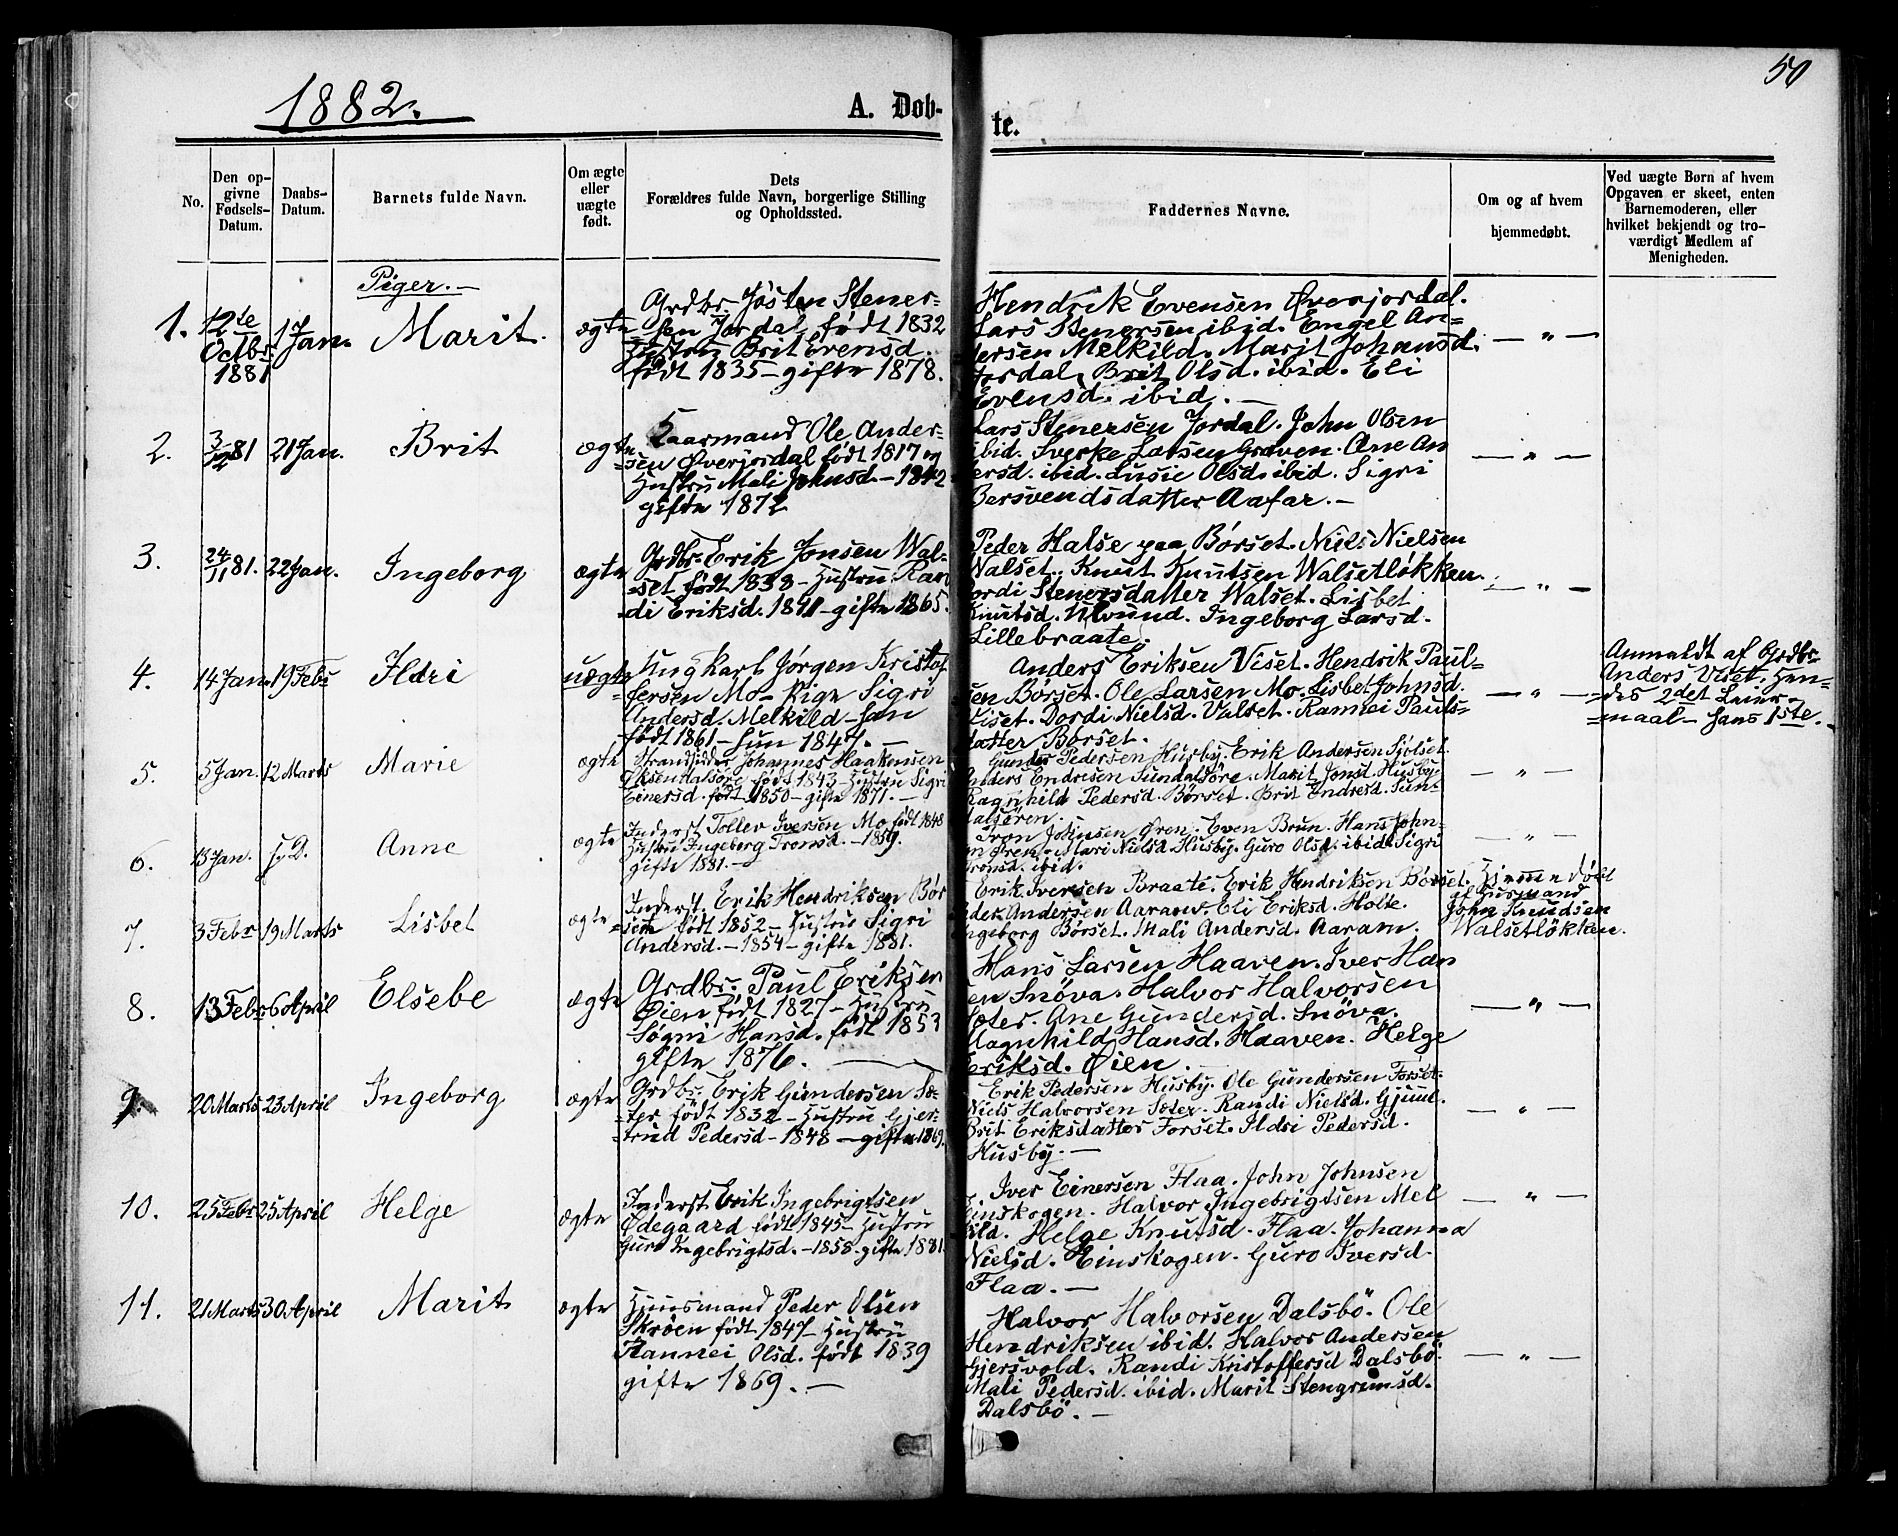 50
1882.
A. Døb-
te.
No.
Den op-
givne
Fødsels-
Datum.
Daabs-
Datum.
Barnets fulde Navn.
Om ægte
eller
uægte
født.
Dets
Forældres fulde Navn, borgerlige Stilling
og Opholdssted.
Faddernes Navne.
Om og af hvem
hjemmedøbt.
Ved uægte Børn af hvem
Opgaven er skeet, enten
Barnemoderen, eller
hvilket bekjendt og tro-
værdigt Medlem af
Menigheden.
Piger.—
1.
12te
Octbr
1881
1 Jan.
Marit.
ægte
Grdbr. Jøsten Stener-
sen Jordal, født 1832
Hustru Brit Evensd.
født 1835 — gifte 1878.
Hendrik Evensen Øverjordal.
Lars Stenersen ibid. Engel An-
dersen Melkild. Marit Johansd.
Jordal. Brit Olsd. ibid. Eli
Evensd. ibid. —
— " —
2.
3/12 81
21 Jan.
Brit
ægte
Kaarmand Ole Ander-
sen Øverjordal født 1817 og
Hustru Mali Johnsd. — 1842
gifte 1872
Lars Stenersen Jordal. John Olsen
ibid. Sverke Larsen Graven. Ane An
dersd. ibid. Lusie Olsd. ibid. Sigri
Bersvendsdatter Aafar. —
— " —
3.
24/11 81.
22 Jan.
Ingeborg
ægte
Grdbr. Erik Jonsen Wal-
set født 1838 — Hustru Ran
di Eriksd. 1841 — gifte 1865.
Peder Halse paa Børset. Niels Nielsen
Walset. Knut Knutsen Walsetløkken.
Dordi Stenersdatter Walset. Lisbet
Knutsd. Ulvund. Ingeborg Larsd.
Lillebraate.
— " —
4.
14 Jan.
19 Febr
Ildri
uægte
Ung Karl Jørgen Kristof
fersen Mo — Pige Sigri
Andersd. Melkild — han
født 1861 — hun 1847. —
Anders Eriksen Viset. Hendrik Paul-
sen Børset. Ole Larsen Mo. Lisbet Johnsd.
Viset. Dordi Nielsd. Valset. Rannei Pauls-
datter Børset.
— " —
Anmeldt af Grdbr
Anders Viset. Hen-
des 2det Leier-
maal — hans 1ste.
5.
5 Jan.
12 Marts
Marie
ægte
Strandsider Johannes Haakensen
Øksendalsøre født 1843 — Hustru Sigri
Einersd. født 1850 — gifte 1871. —
Gunder Pedersen Husby. Erik Andersen Sjølset.
Anders Endresen Sundalsøre. Marit Jonsd. Husby.
Ragnhild Pedersd. Børset. Brit Endresd. Sun-
dalsøren.
— " —
6.
13 Jan.
s. D.
Anne
ægte
Inderst Tollev Iversen Mo født 1848
Hustru Ingeberg Tronsd. — 1859.
gifte 1881. —
Tron Johnsen Øren. Even Brun. Hans John-
sen Øren. Mari Nielsd Husby. Guro Olsd. ibid. Sigri
Tronsd. ibid.
— " —
7.
3 Febr
19 Marts
Lisbet
ægte
Inderst. Erik Hendriksen Bør
set født 1852 — Hustru Sigri
Andersd. — 1854 — gifte 1881.
Erik Iversen Braate. Erik Hendriksen Børset.
Peder Andersen Aaram. Eli Eriksd. Holte.
Ingeborg Børset. Mali Andersd. Aaram.
Hjemmedøbt
af Husmand
John Knudsen
Walsetløkken.
8.
13 Febr
6 April
Elsebe
ægte
Grdbr. Paul Eriksen
Øien født 1827 — Hustru
Søgni Hansd. født 1853
gifte 1876. —
Hans Larsen Haaven. Iver Han
sen Snøva. Halvor Halvorsen
Sæter. Ane Gundersd. Snøva.
Magnhild Hansd. Haaven. Helge
Eriksd. Øien.
— " —
9.
20 Marts
23 April
Ingeborg
ægte
Grdbr. Erik Gundersen Sæ-
ter født 1832 — Hustru Gjer-
trud Pedersd — 1848 — gifte 1869.
Erik Pedersen Husby. Ole Gundersen Forset.
Niels Halvorsen Sæter. Randi Nielsd. Gjuul.
Brit Eriksdatter Forset. Ildri Pedersd.
Husby. —
— " —
10.
25 Febr
25 April
Helge
ægte
Inderst Erik Ingebrigtsen
Ødegaard født 1845 — Hustru
Guro Ingebrigtsd. — 1858. gifte 1881.
Iver Einersen Flaa. John Johnsen
Einskogen. Halvor Ingebrigtsen Mel
kild. Helge Knutsd. Flaa. Johanna
Nielsd. Einskogen. Guro Iversd.
Flaa. —
— " —
11.
21 Marts
30 April
Marit
ægte
Huusmand Peder Olsen
Skrøen født 1847 — Hustru
Rannei Olsd. født 1839
gifte 1869. —
Halvor Halvorsen Dalsbö. Ole
Hendriksen ibid. Halvor Andersen
Gjersvold. Randi Kristoffersd Dalsbö.
Mali Pedersd. ibid. Marit Stengrimsd.
Dalsbö. —
— " —